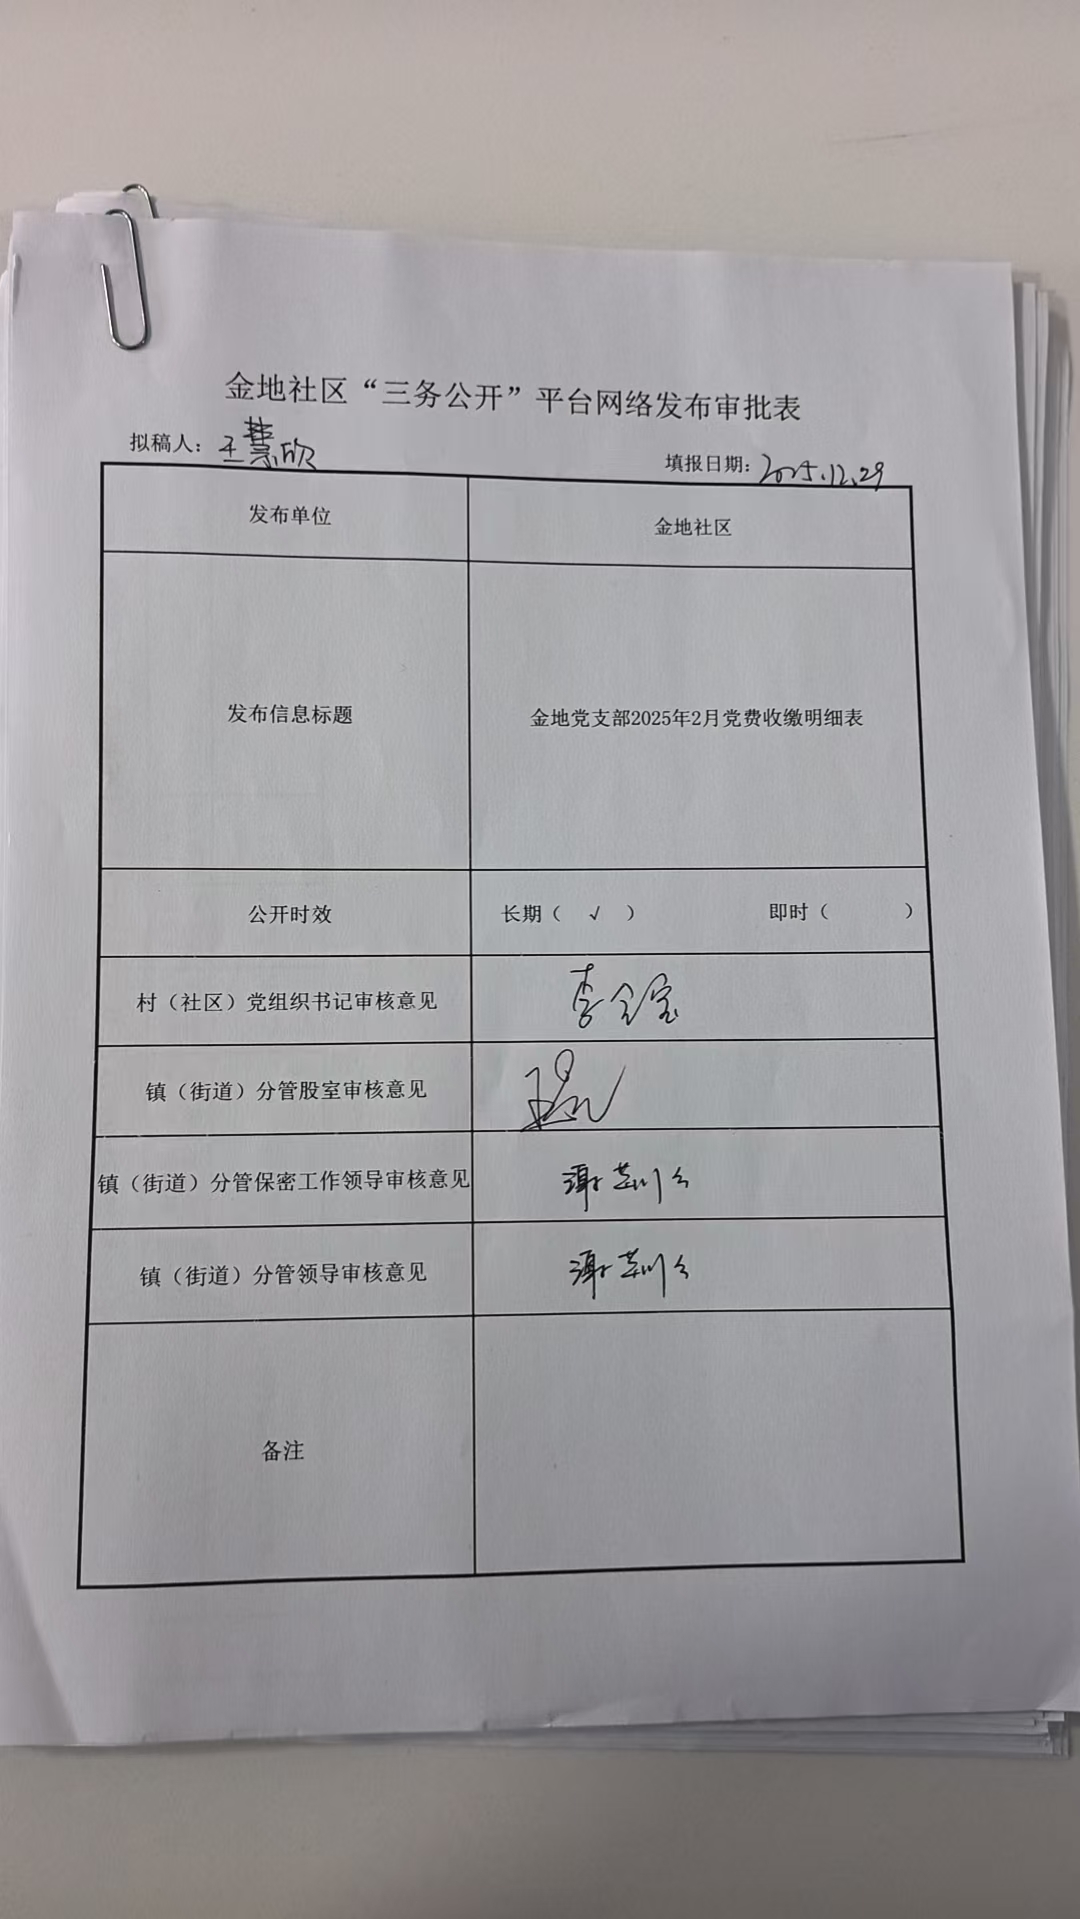 金地社区“三务公开”平台网络发布审批表
拟稿人：王慧欣
填报日期：2025.12.29
发布单位 金地社区
发布信息标题 金地党支部2025年2月党费收缴明细表
公开时效 长期（ √ ） 即时（ ）
村（社区）党组织书记审核意见 李
镇（街道）分管股室审核意见
镇（街道）分管保密工作领导审核意见 谢
镇（街道）分管领导审核意见 谢
备注